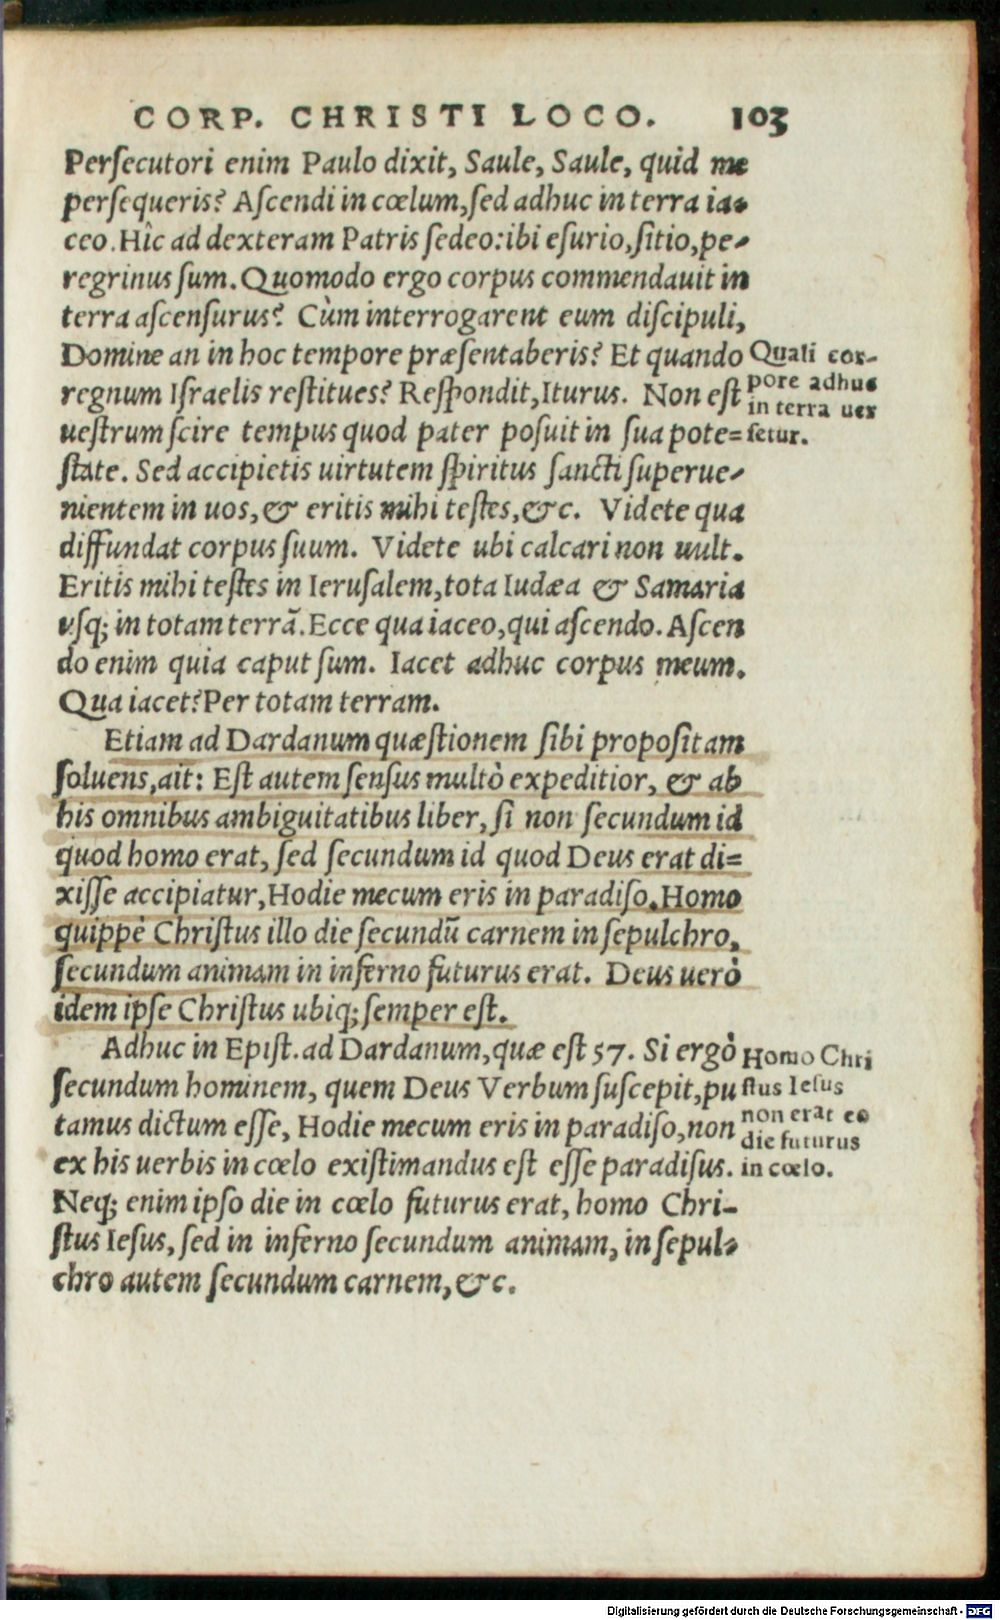 CORP. CHRISTI LOCO. 103
Perſecutori enim Paulo dixit, Saule, Saule, quid me
perſequeris? Aſcendi in cœlum, ſed adhuc in terra ia-
ceo. Hîc ad dexteram Patris ſedeo: ibi eſurio, ſitio, pe-
regrinus ſum. Quomodo ergo corpus commendauit in
terra aſcenſurus? Cùm interrogarent eum diſcipuli,
Domine an in hoc tempore præſentaberis? Et quando
regnum Iſraelis reſtitues? Reſpondit, Iturus. Non eſt
ueſtrum ſcire tempus quod pater poſuit in ſua pote=
ſtate. Sed accipietis uirtutem ſpiritus ſancti ſuperue-
nientem in uos, & eritis mihi teſtes, &c. Videte qua
diffundat corpus ſuum. Videte ubi calcari non uult.
Eritis mihi teſtes in Ieruſalem, tota Iudæa & Samaria
vſq; in totam terrã. Ecce qua iaceo, qui aſcendo. Aſcen
do enim quia caput ſum. Iacet adhuc corpus meum.
Qua iacet? Per totam terram.
Quali cor-
pore adhuc
in terra uer
ſetur.
Etiam ad Dardanum quæſtionem ſibi propoſitam
ſoluens, ait: Eſt autem ſenſus multò expeditior, & ab
his omnibus ambiguitatibus liber, ſi non ſecundum id
quod homo erat, ſed ſecundum id quod Deus erat di=
xiſſe accipiatur, Hodie mecum eris in paradiſo. Homo
quippè Chriſtus illo die ſecundũ carnem in ſepulchro,
ſecundum animam in inferno futurus erat. Deus uerò
idem ipſe Chriſtus ubiq; ſemper eſt.
Adhuc in Epiſt. ad Dardanum, quæ eſt 57. Si ergò
ſecundum hominem, quem Deus Verbum ſuſcepit, pu
tamus dictum eſſe, Hodie mecum eris in paradiſo, non
ex his uerbis in cœlo exiſtimandus eſt eſſe paradiſus.
Neq; enim ipſo die in cœlo futurus erat, homo Chri-
ſtus Ieſus, ſed in inferno ſecundum animam, in ſepul-
chro autem ſecundum carnem, &c.
Homo Chri
ſtus Ieſus
non erat eo
die futurus
in cœlo.
Digitalisierung gefördert durch die Deutsche Forschungsgemeinschaft - DFG